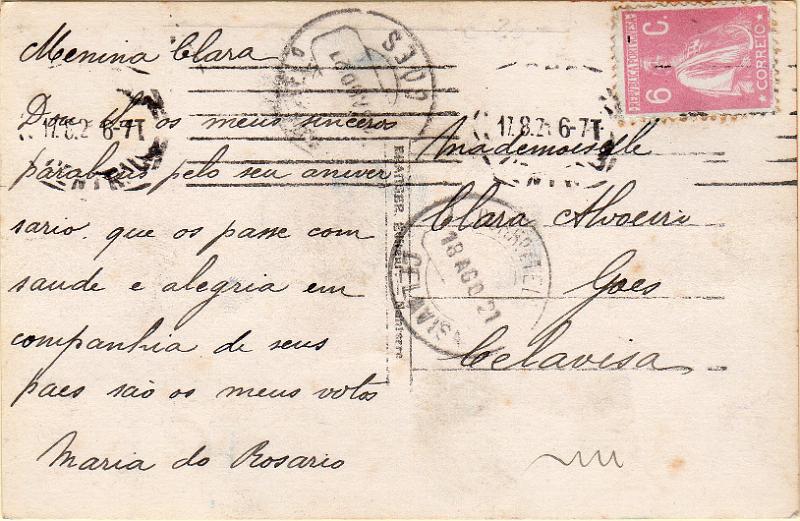 Menina Clara
Dou-lhe os meus sinceros
parabens pelo seu aniver
sario. que os passe com
saude e alegria em
companhia de seus
paes são os meus votos
Maria do Rosario
Mademoiselle
Clara Alvoeiro
Goes
Celavisa
REPUBLICA PORTUGUESA
6 C.
CORREIO
17.8.2 6-7T
17.8.2 6-7T
CENTRAL
GOES
18 AGO 21
CELAVISA
Nanterre